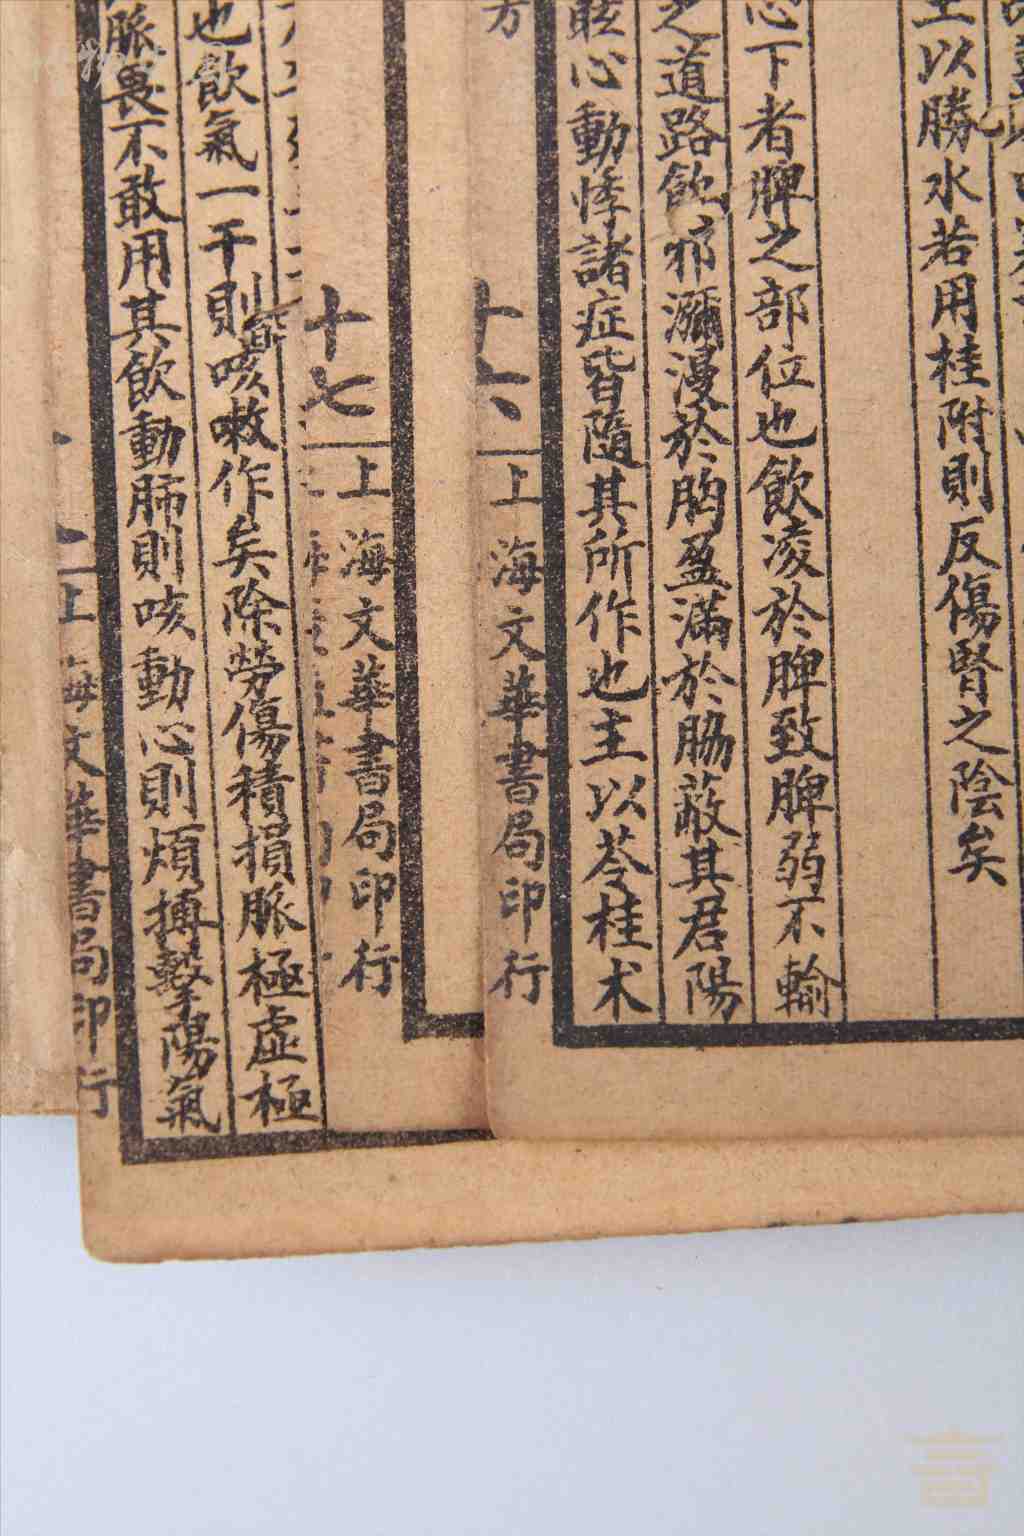 主以勝水若用桂附則反傷腎之陰矣
心下者脾之部位也飲凌於脾致脾弱不輸
之道路飲邪瀰漫於胸盈滿於脇蔽其君陽
眩心動悸諸症皆隨其所作也主以苓桂术
方
十六
上海文華書局印行
十七
上海文華書局印行
也飲氣一干則咳嗽作矣除勞傷積損脈極虛極
脈畏不敢用其飲動肺則咳動心則煩搏擊陽氣
上海文華書局印行